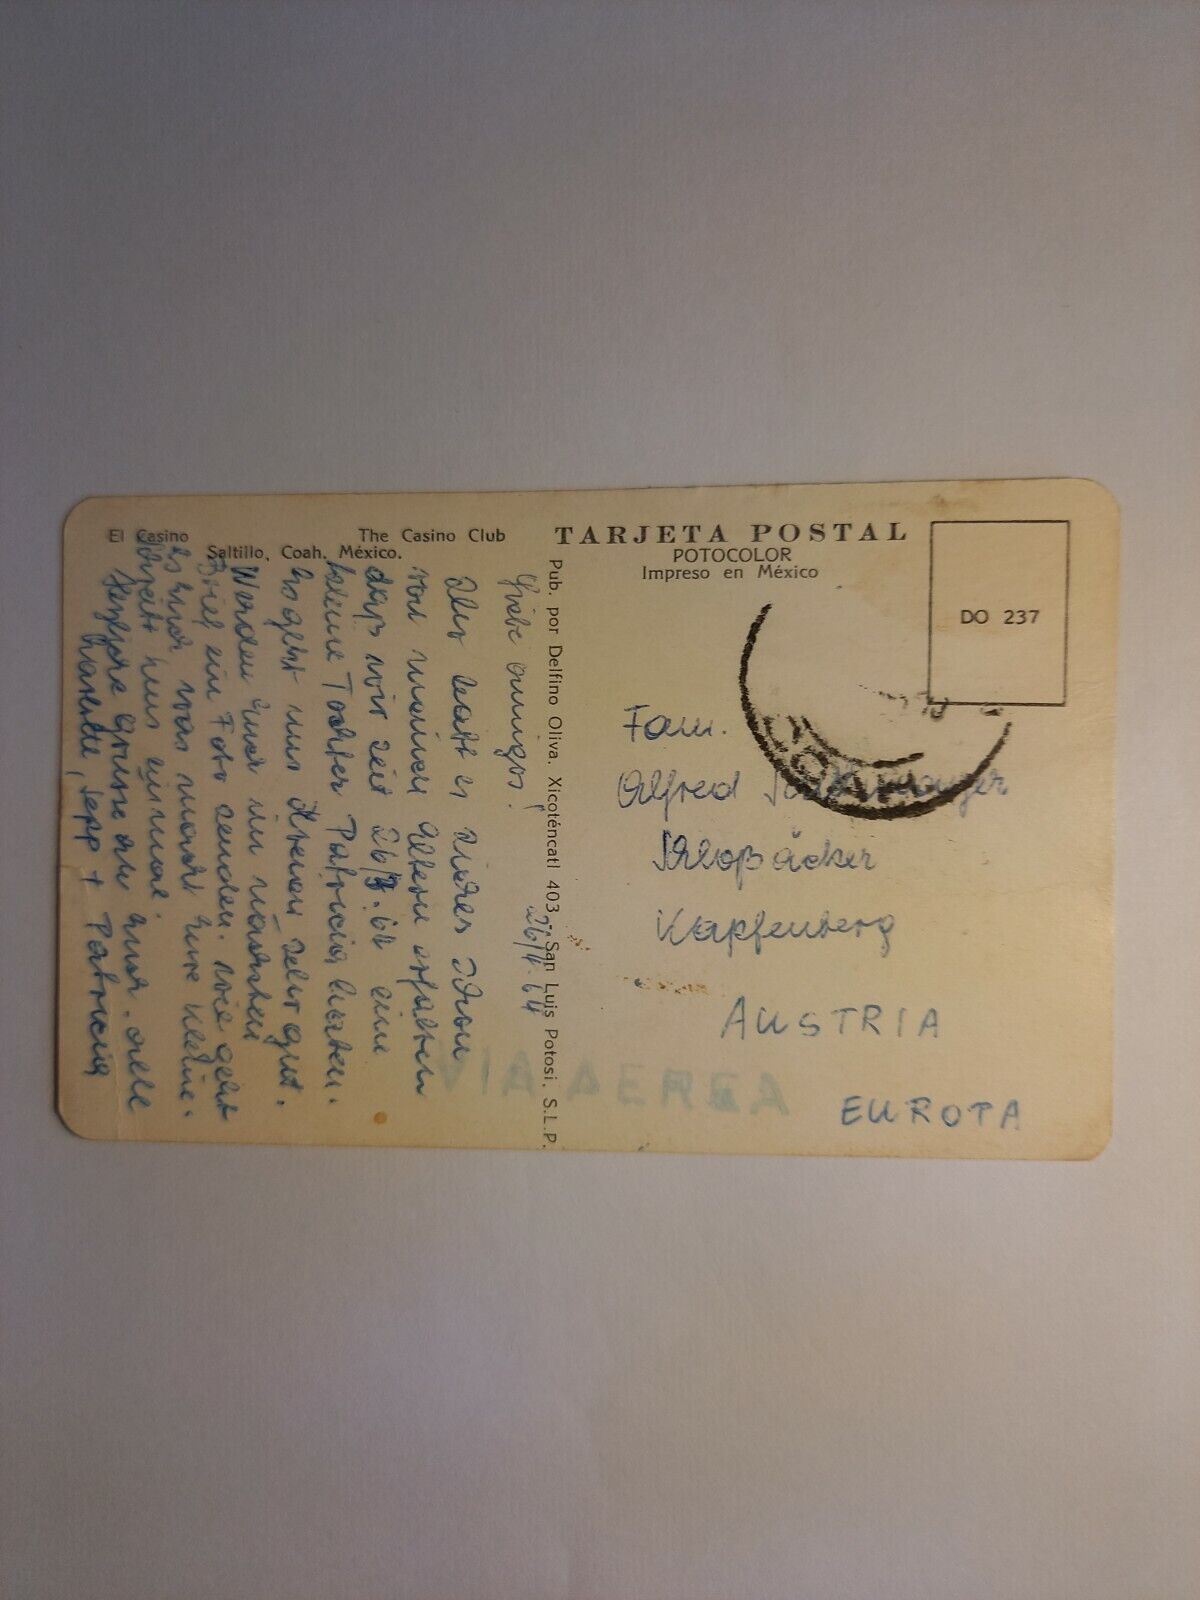 El Casino The Casino Club
Saltillo, Coah. México.
TARJETA POSTAL
POTOCOLOR
Impreso en México
DO 237
Pub. por Delfino Oliva. Xicoténcatl 403 - San Luis Potosi, S.L.P.
26/4.64
Liebe amigos!
Ihr habt es sicher schon
von meinen Eltern erfahren
daß wir seit 26/3.64 eine
kleine Tochter Patricia haben.
Es geht uns dreien sehr gut.
Werden Euch im nächsten
Brief ein Foto senden. Wie geht
es Euch, was macht Eure Kleine.
Schreibt uns einmal.
Herzliche Grüsse an Euch alle
Sepp + Patricia
Fam.
Alfred
Schloßäcker
Kapfenberg
AUSTRIA
EUROPA
VIA AEREA